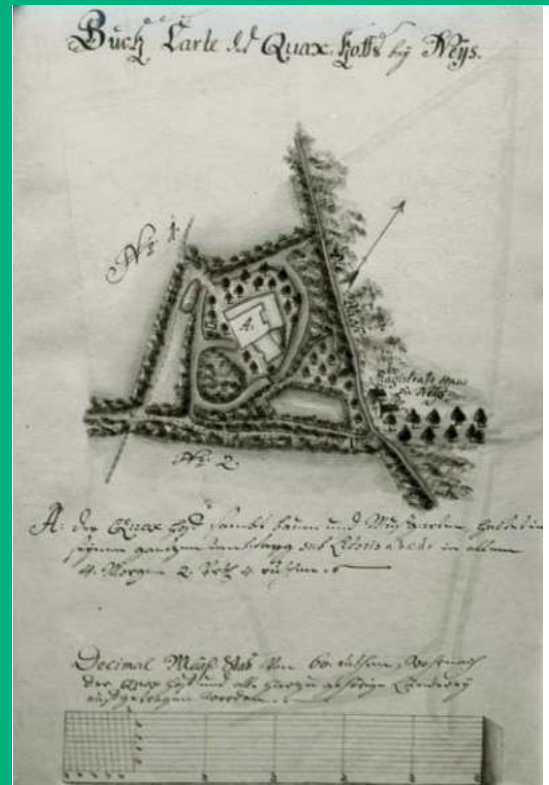 Buch Carte des Quax hoffs bey Neys.
No 1.
A.
Magistrats Haus
zu Neys
No 2.
A: der Quax hoff sambt bauen und garten, haltet in
seinem gantzen in allem
4. Morgen 2. 4. ruthen.
Decimal Maaß Stab Von 60. ruthen, Wornach
der Quax hoff und alle hierzu gehörige Länderey
außgetragen worden.